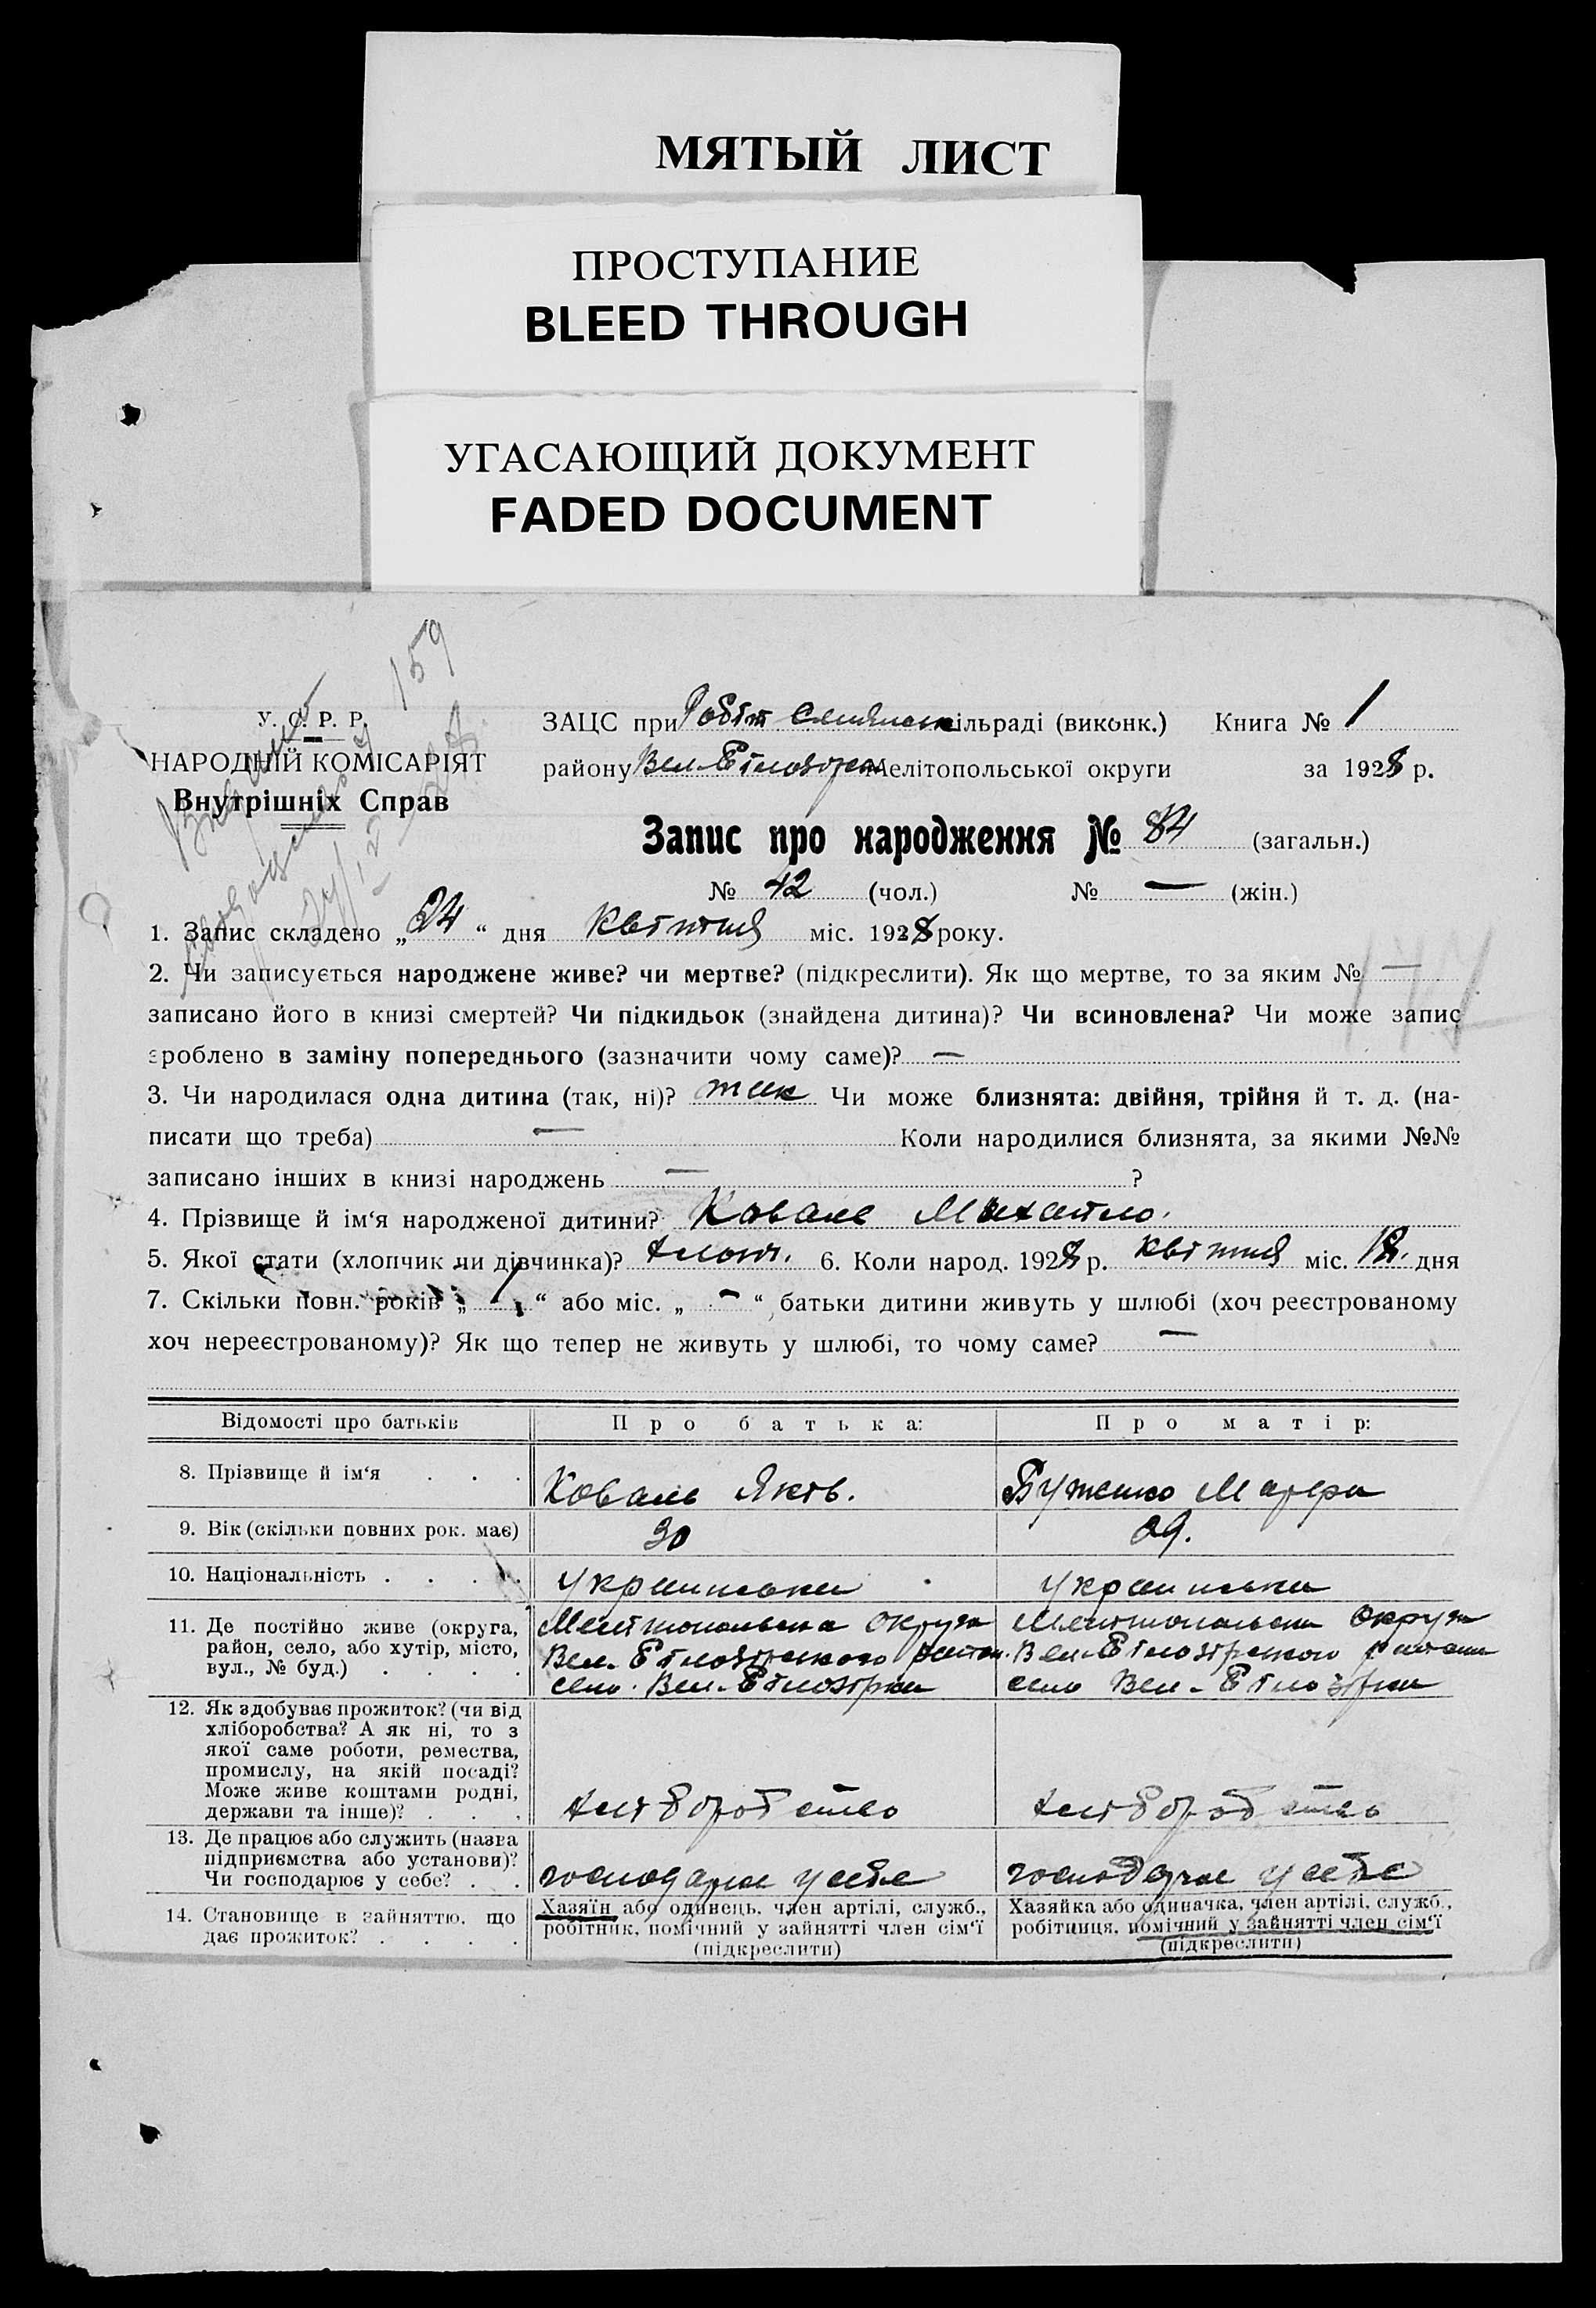 МЯТЫЙ ЛИСТ
ПРОСТУПАНИЕ
BLEED THROUGH
УГАСАЮЩИЙ ДОКУМЕНТ
FADED DOCUMENT
159
У. С. Р. Р.
НАРОДНІЙ КОМІСАРІЯТ
Внутрішніх Справ
ЗАЦС при Робіт Селянськ сільраді (виконк.) Книга № 1
району Вел-Білозірка Мелітопольської округи за 1928 р.
Запис про народження № 84 (загальн.)
№ 42 (чол.) № — (жін.)
1. Запис складено „24“ дня квітня міс. 1928 року.
2. Чи записується народжене живе? чи мертве? (підкреслити). Як що мертве, то за яким № —
записано його в книзі смертей? Чи підкидьок (знайдена дитина)? Чи всиновлена? Чи може запис
зроблено в заміну попереднього (зазначити чому саме)? —
3. Чи народилася одна дитина (так, ні)? так Чи може близнята: двійня, трійня й т. д. (на-
писати що треба) — Коли народилися близнята, за якими №№
записано інших в книзі народжень — ?
4. Прізвище й ім‘я народженої дитини? Коваль Михайло.
5. Якої стати (хлопчик чи дівчинка)? хлопч. 6. Коли народ. 1928 р. квітня міс. 18. дня
7. Скільки повн. років „1“ або міс. „-“ батьки дитини живуть у шлюбі (хоч реєстрованому
хоч нереєстрованому)? Як що тепер не живуть у шлюбі, то чому саме? —
Відомості про батьків Про батька: Про матір:
8. Прізвище й ім‘я . . . Коваль Яків. Буженко Марфа
9. Вік (скільки повних рок. має) 30 29.
10. Національність . . . . українська українка
11. Де постійно живе (округа,
район, село, або хутір, місто,
вул., № буд.) . . . .
Мелітопольська округа
Вел-Білозірського район.
село. Вел-Білозірка
Мелітопольська округа
Вел-Білозірського района
село Вел-Білозірка
12. Як здобуває прожиток? (чи від
хліборобства? А як ні, то з
якої саме роботи, ремества,
промислу, на якій посаді?
Може живе коштами родні,
держави та інше)? . . .
хліборобство хліборобство
13. Де працює або служить (назва
підприємства або установи)?
Чи господарює у себе? . .
господарює у себе господарює у себе
14. Становище в зайняттю, що
дає прожиток? . . . .
Хазяїн або одинець, член артілі, служб.,
робітник, помічний у зайнятті член сім‘ї
(підкреслити)
Хазяйка або одиначка, член артілі, служб.,
робітниця, помічний у зайнятті член сім‘ї
(підкреслити)